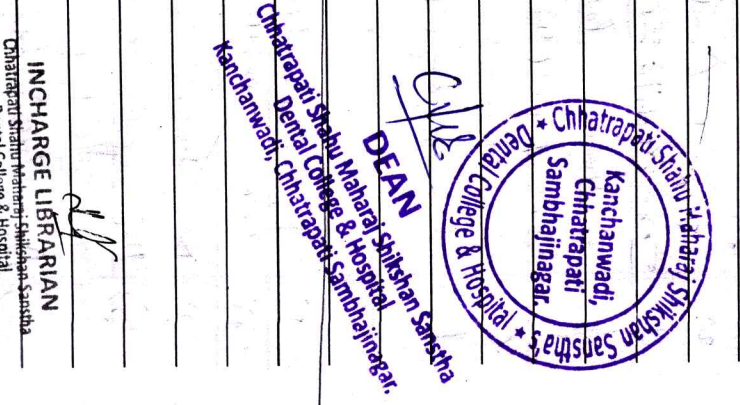 Chhatrapati Shahu Maharaj Shikshan Sanstha's
★ Dental College & Hospital ★
Kanchanwadi,
Chhatrapati
Sambhajinagar.
DEAN
Chhatrapati Shahu Maharaj Shikshan Sanstha
Dental College & Hospital
Kanchanwadi, Chhatrapati Sambhajinagar.
INCHARGE LIBRARIAN
Chhatrapati Shahu Maharaj Shikshan Sanstha
Dental College & Hospital